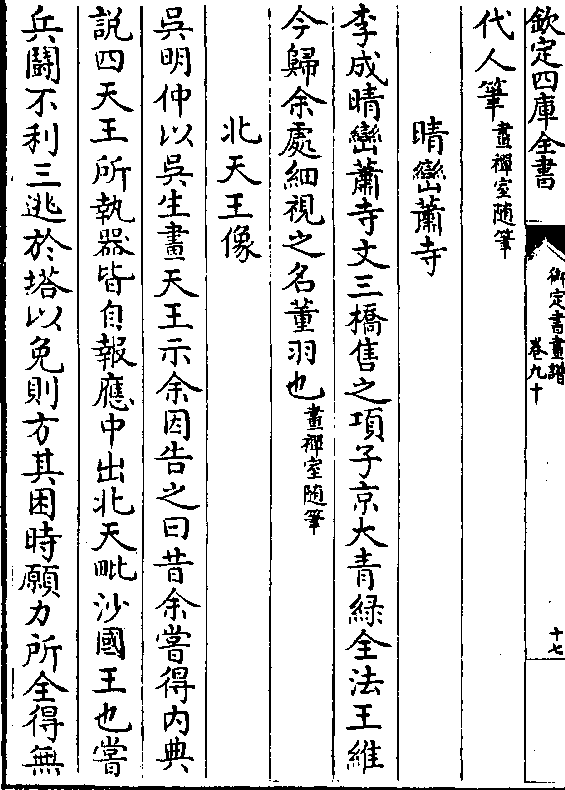 欽定四庫全書
御定書畫譜
卷九十
十七
代人筆畫禪室随筆
晴巒蕭寺
李成晴巒蕭寺文三橋售之項子京大青緑全法王維
今歸余處細視之名董羽也畫禪室随筆
北天王像
吳明仲以吳生畫天王示余因告之曰昔余嘗得内典
説四天王所執器皆自報應中出北天毗沙國王也嘗
兵鬬不利三逃於塔以免則方其困時願力所全得無